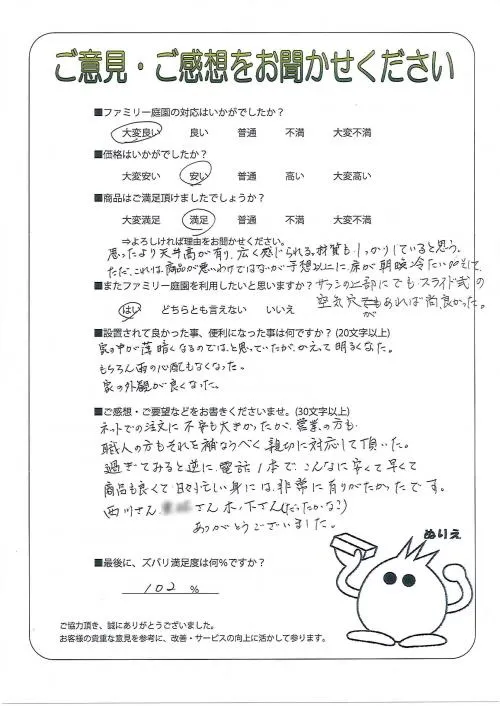 ご意見・ご感想をお聞かせください
■ファミリー庭園の対応はいかがでしたか？
大変良い 良い 普通 不満 大変不満
■価格はいかがでしたか？
大変安い 安い 普通 高い 大変高い
■商品はご満足頂けましたでしょうか？
大変満足 満足 普通 不満 大変不満
⇒よろしければ理由をお聞かせください。
思ったより天井高が有り、広く感じられる。材質もしっかりしていると思う。
ただ、これは商品が悪いわけではないが予想以上に床が朝晩冷たい
サッシの上部にでもスライド式の
空気穴でもあれば尚良かった。
が
■またファミリー庭園を利用したいと思いますか？
はい どちらとも言えない いいえ
■設置されて良かった事、便利になった事は何ですか？(20文字以上)
家の中が薄暗くなるのではと思っていたが、かえって明るくなった。
もちろん雨の心配もなくなった。
家の外観が良くなった。
■ご感想・ご要望などをお書きくださいませ。(30文字以上)
ネットでの注文に不安も大きかったが、営業の方も
職人の方もそれを補なうべく親切に対応して頂いた。
過ぎてみると逆に、電話1本で、こんなに安くて早くて
商品も良くて日々忙しい身には、非常に有りがたかったです。
西川さん、 さん 木ノ下さん(だったかな?)
ありがとうございました。
■最後に、ズバリ満足度は何%ですか？
102 %
ぬりえ
ご協力頂き、誠にありがとうございました。
お客様の貴重な意見を参考に、改善・サービスの向上に活かして参ります。